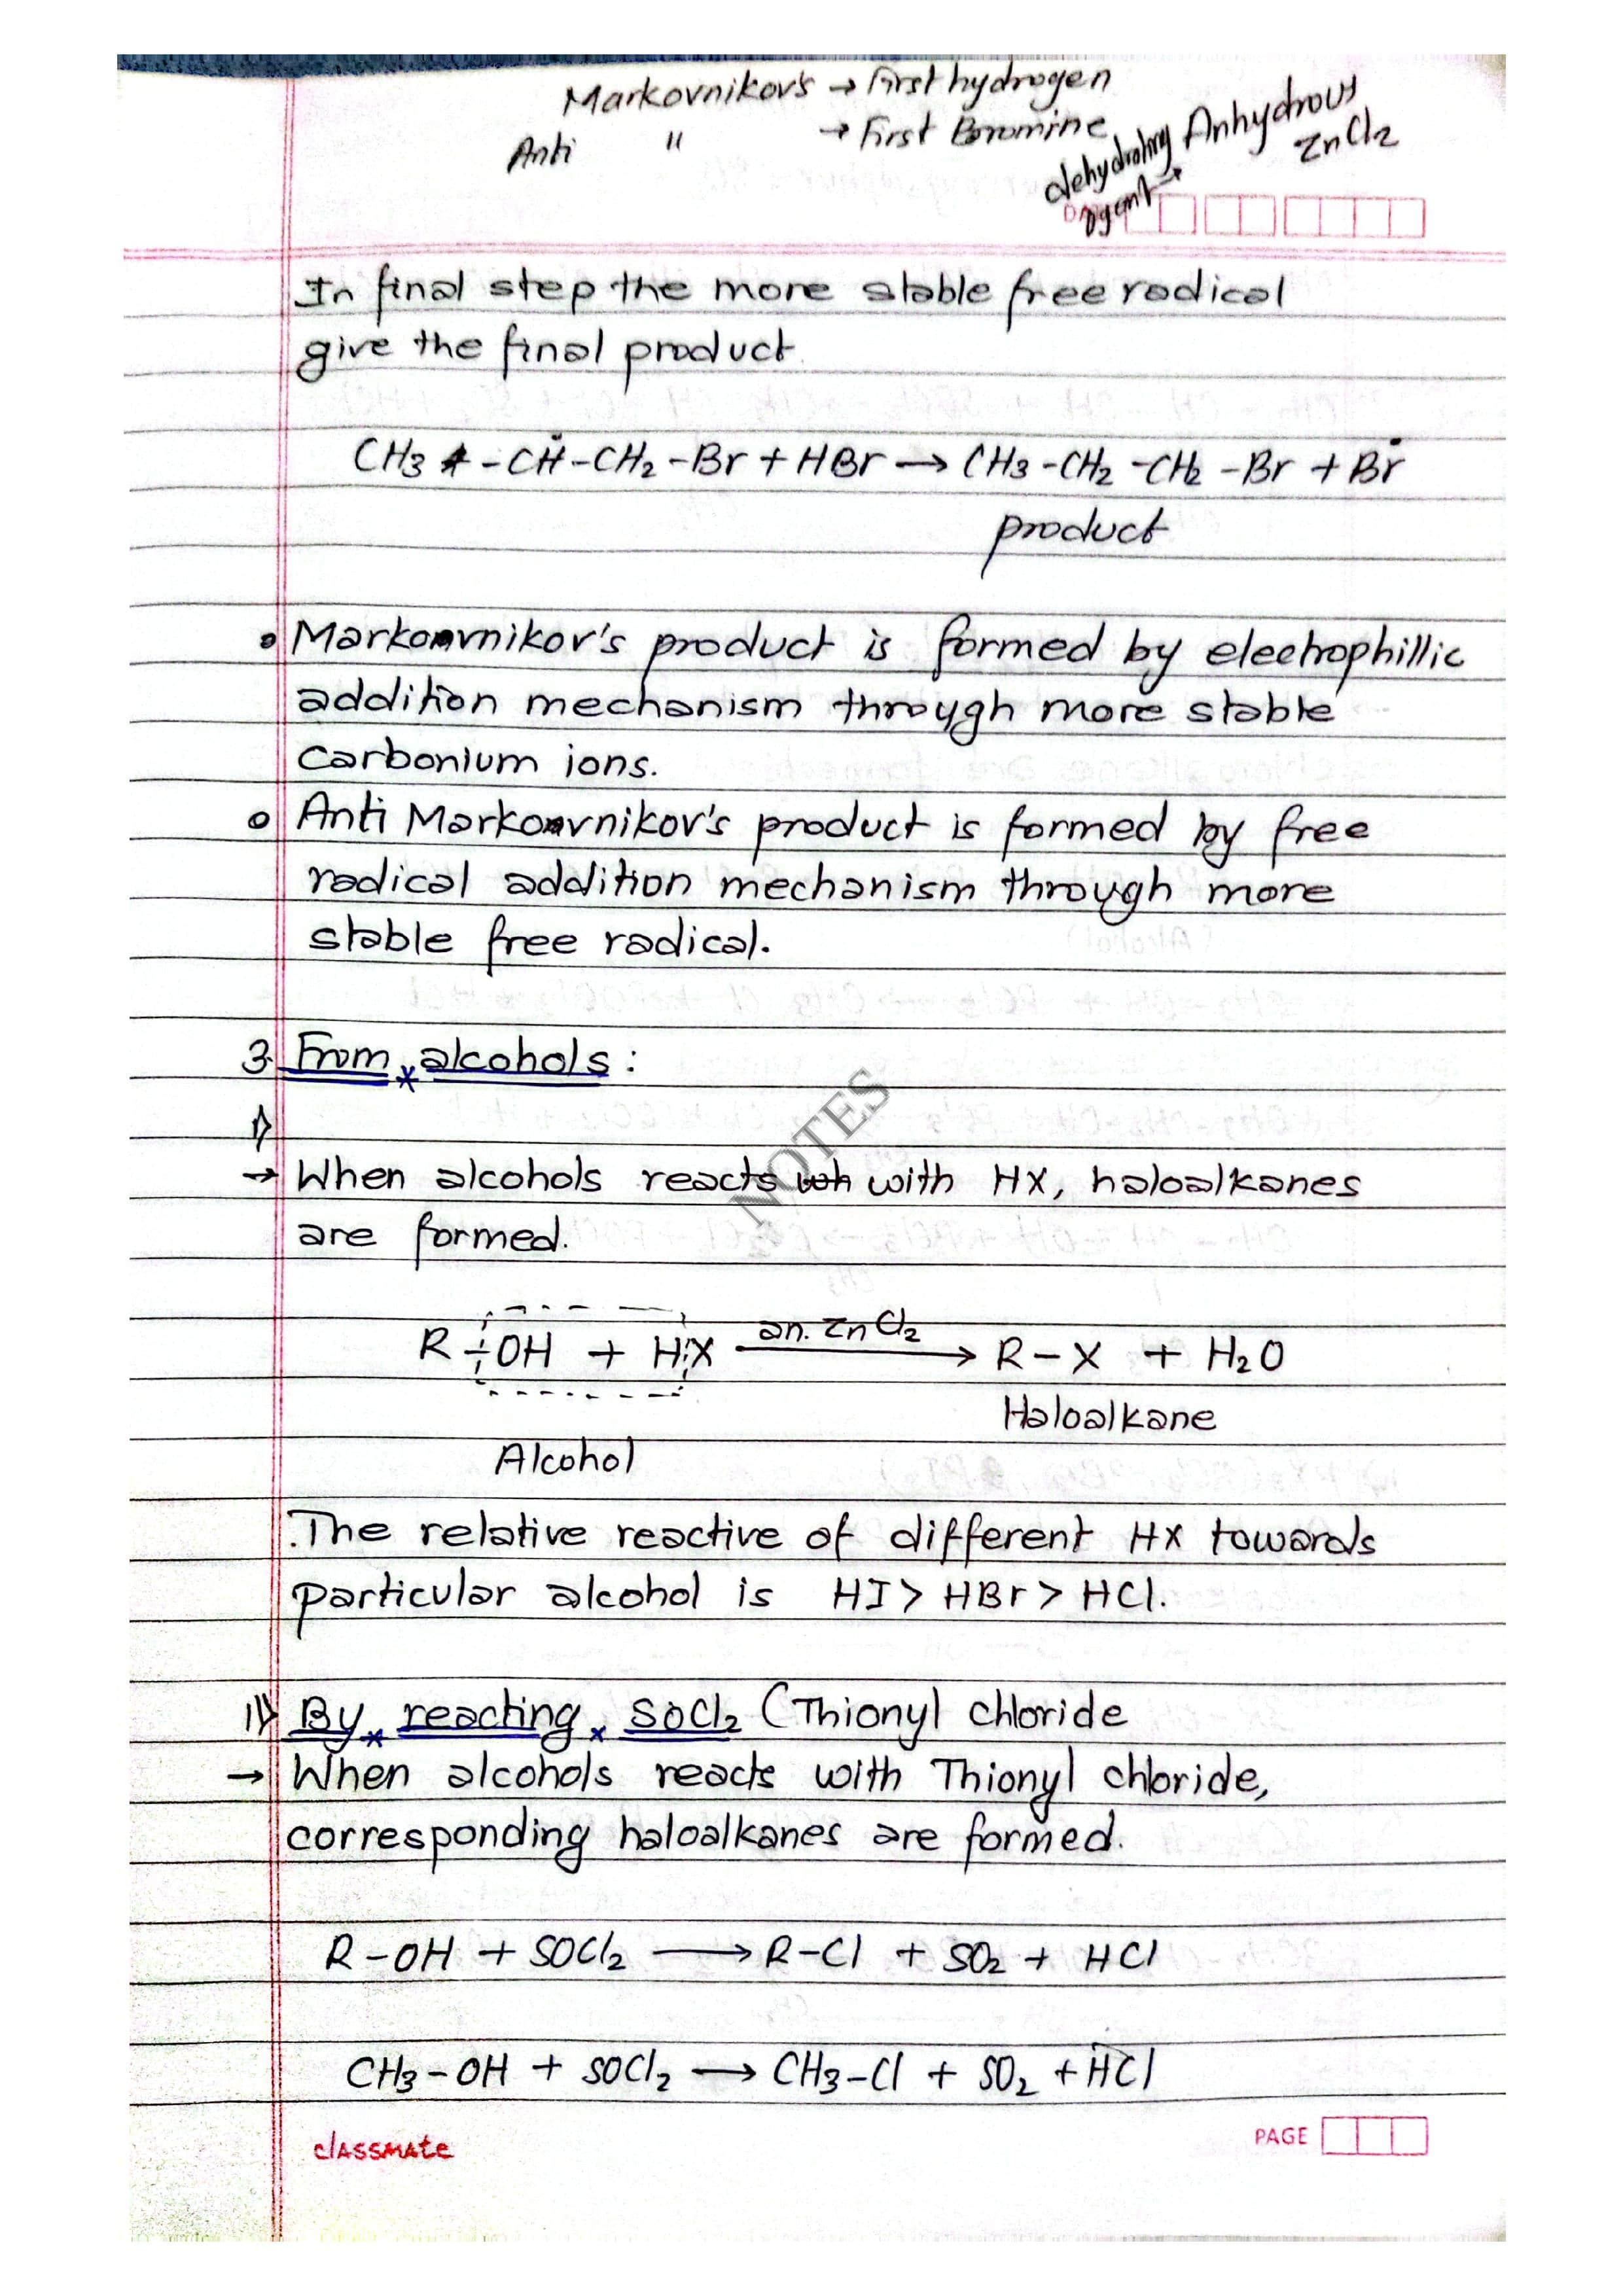 Markovnikov's → First hydrogen
Anti " → First Boromine
dehydrating agent → Anhydrous ZnCl2
In final step the more stable free radical
give the final product
CH3 - CḢ - CH2 - Br + HBr → CH3 - CH2 - CH2 - Br + Bṙ
product
• Markovnikov's product is formed by electrophillic
addition mechanism through more stable
carbonium ions.
• Anti Markovnikov's product is formed by free
radical addition mechanism through more
stable free radical.
3. From alcohols :
I)
→ When alcohols reacts with HX, haloalkanes
are formed.
R - OH + HX an. ZnCl2 → R - X + H2O
Haloalkane
Alcohol
.The relative reactive of different HX towards
particular alcohol is HI > HBr > HCl.
II) By reacting SOCl2 (Thionyl chloride
→ When alcohols reacts with Thionyl chloride,
corresponding haloalkanes are formed.
R - OH + SOCl2 → R - Cl + SO2 + HCl
CH3 - OH + SOCl2 → CH3 - Cl + SO2 + HCl
classmate
PAGE
NOTES